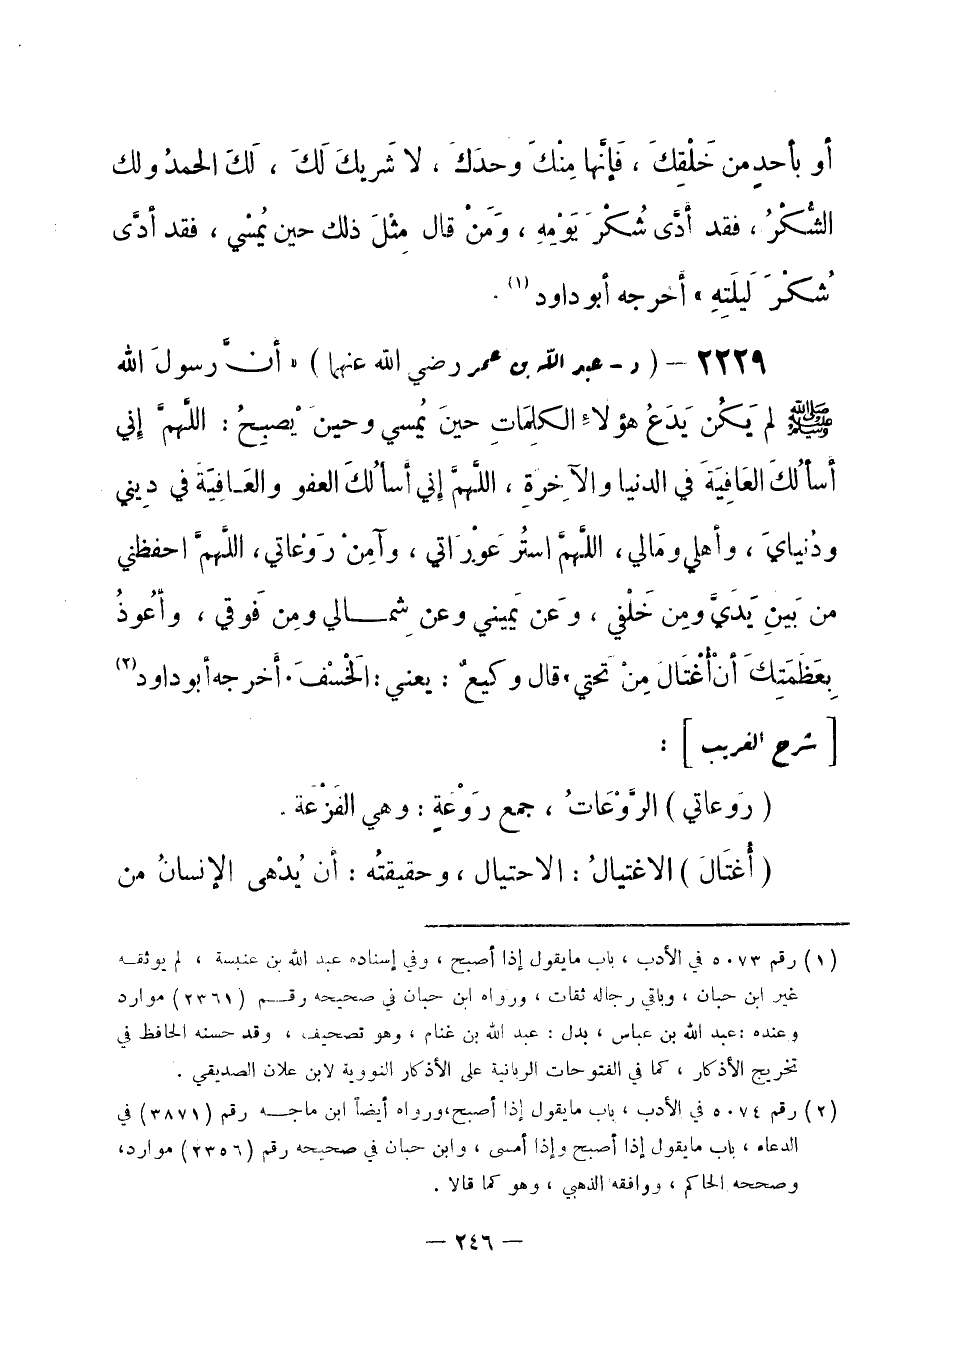 أو بأحدٍ من خَلْقِكَ ، فَإنَّها مِنْكَ وحدَكَ ، لا شَريكَ لَكَ ، لَكَ الحمدُ ولك
الشُّكْرُ ، فقد أدَّى شُكْرَ يَوْمِهِ ، وَمَنْ قال مِثْلَ ذلك حين يُمْسي ، فقد أدَّى
شُكْرَ لَيلَتِهِ » أخرجه أبو داود (١) .
٢٢٢٩ — ( د – عبد الله بن عمر رضي الله عنهما ) « أنَّ رسولَ الله
ﷺ لم يَكُن يَدَعُ هؤلاءِ الكلِمَاتِ حينَ يُمسي وحينَ يُصبِحُ : اللَّهمَّ إني
أسأَلُكَ العَافِيَةَ في الدنيا والآخِرةِ ، اللَّهمَّ إني أسألُكَ العفو والعَافِيَةَ في دِيني
ودُنيايَ ، وأهلي ومَالي ، اللَّهمَّ استُر عَوْرَاتي ، وآمِنْ رَوْعاتي ، اللَّهمَّ احفظني
من بَينِ يَدَيَّ ومِن خَلْفي ، وعَن يَميني وعن شِمالي ومِن فَوقي ، وأعُوذُ
بِعَظَمَتِكَ أنْ أُغْتَالَ مِنْ تَحتي » قال وكيعٌ : يعني : الخَسْفَ . أخرجه أبو داود (٢)
[ شرح الغريب ] :
( رَوعاتي ) الرَّوْعَاتُ ، جمع رَوْعَةٍ : وهي الفَزْعَة .
( أُغتَالَ ) الاغتيالُ : الاحتيال ، وحقيقتُه : أن يُدْهى الإنسانُ من
(١) رقم ٥٠٧٣ في الأدب ، باب ما يقول إذا أصبح ، وفي إسناده عبد الله بن عنبسة ، لم يوثقه
غير ابن حبان ، وباقي رجاله ثقات ، ورواه ابن حبان في صحيحه رقم (٢٣٦١) موارد
وعنده : عبد الله بن عباس ، بدل : عبد الله بن غنام ، وهو تصحيف ، وقد حسنه الحافظ في
تخريج الأذكار ، كما في الفتوحات الربانية على الأذكار النووية لابن علان الصديقي .
(٢) رقم ٥٠٧٤ في الأدب ، باب ما يقول إذا أصبح ، ورواه أيضاً ابن ماجه رقم (٣٨٧١) في
الدعاء ، باب ما يقول إذا أصبح وإذا أمسى ، وابن حبان في صحيحه رقم (٢٣٥٦) موارد ،
وصححه الحاكم ، ووافقه الذهبي ، وهو كما قالا .
— ٢٤٦ —